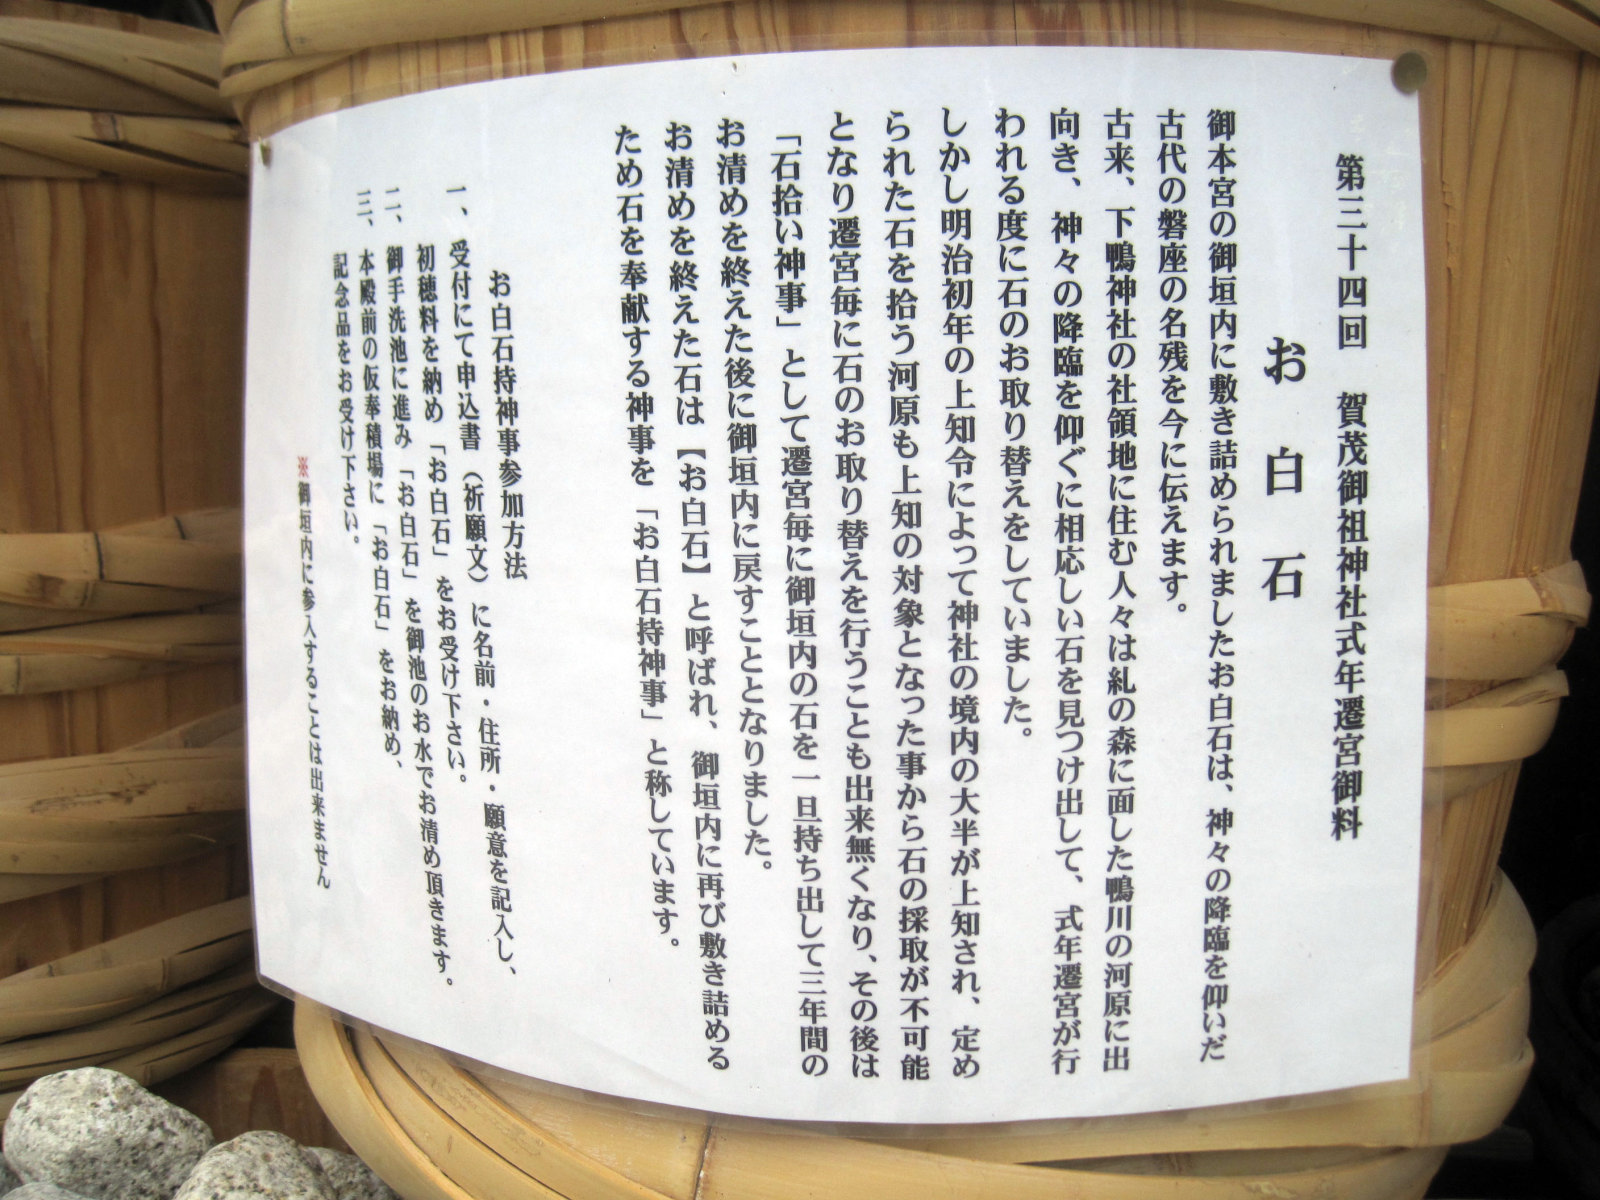 第三十四回　賀茂御祖神社式年遷宮御料
お白石
御本宮の御垣内に敷き詰められましたお白石は、神々の降臨を仰いだ
古代の磐座の名残を今に伝えます。
古来、下鴨神社の社領地に住む人々は糺の森に面した鴨川の河原に出
向き、神々の降臨を仰ぐに相応しい石を見つけ出して、式年遷宮が行
われる度に石のお取り替えをしていました。
しかし明治初年の上知令によって神社の境内の大半が上知され、定め
られた石を拾う河原も上知の対象となった事から石の採取が不可能
となり遷宮毎に石のお取り替えを行うことも出来無くなり、その後は
「石拾い神事」として遷宮毎に御垣内の石を一旦持ち出して三年間の
お清めを終えた後に御垣内に戻すこととなりました。
お清めを終えた石は【お白石】と呼ばれ、御垣内に再び敷き詰める
ため石を奉献する神事を「お白石持神事」と称しています。
お白石持神事参加方法
一、受付にて申込書（祈願文）に名前・住所・願意を記入し、
初穂料を納め「お白石」をお受け下さい。
二、御手洗池に進み「お白石」を御池のお水でお清め頂きます。
三、本殿前の仮奉積場に「お白石」をお納め、
記念品をお受け下さい。
※御垣内に参入することは出来ません